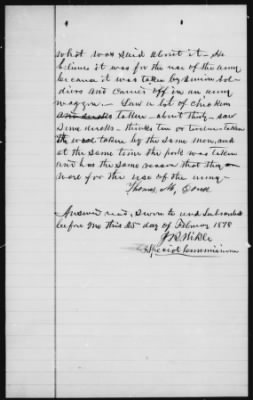 what was said about it - He
believes it was for the use of the army
because it was taken by Union Sol-
diers and carried off in an army
waggon - Saw a lot of chickens
and ducks taken - about thirty - saw
some ducks - thinks ten or twelve - taken
taken by the same men, and
at the same time the pork was taken
and has the same reason that they
were for the use of the army -
Thomas M.
Answer read, Sworn to and Subscribed
before me this 25 day of February 1878
Special Commissioner